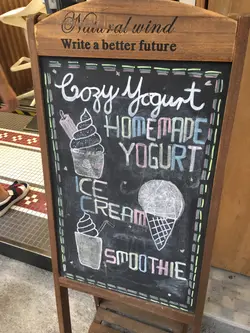 Natural wind
Write a better future
Cozy Yogurt
HOMEMADE
YOGURT
ICE
CREAM
SMOOTHIE